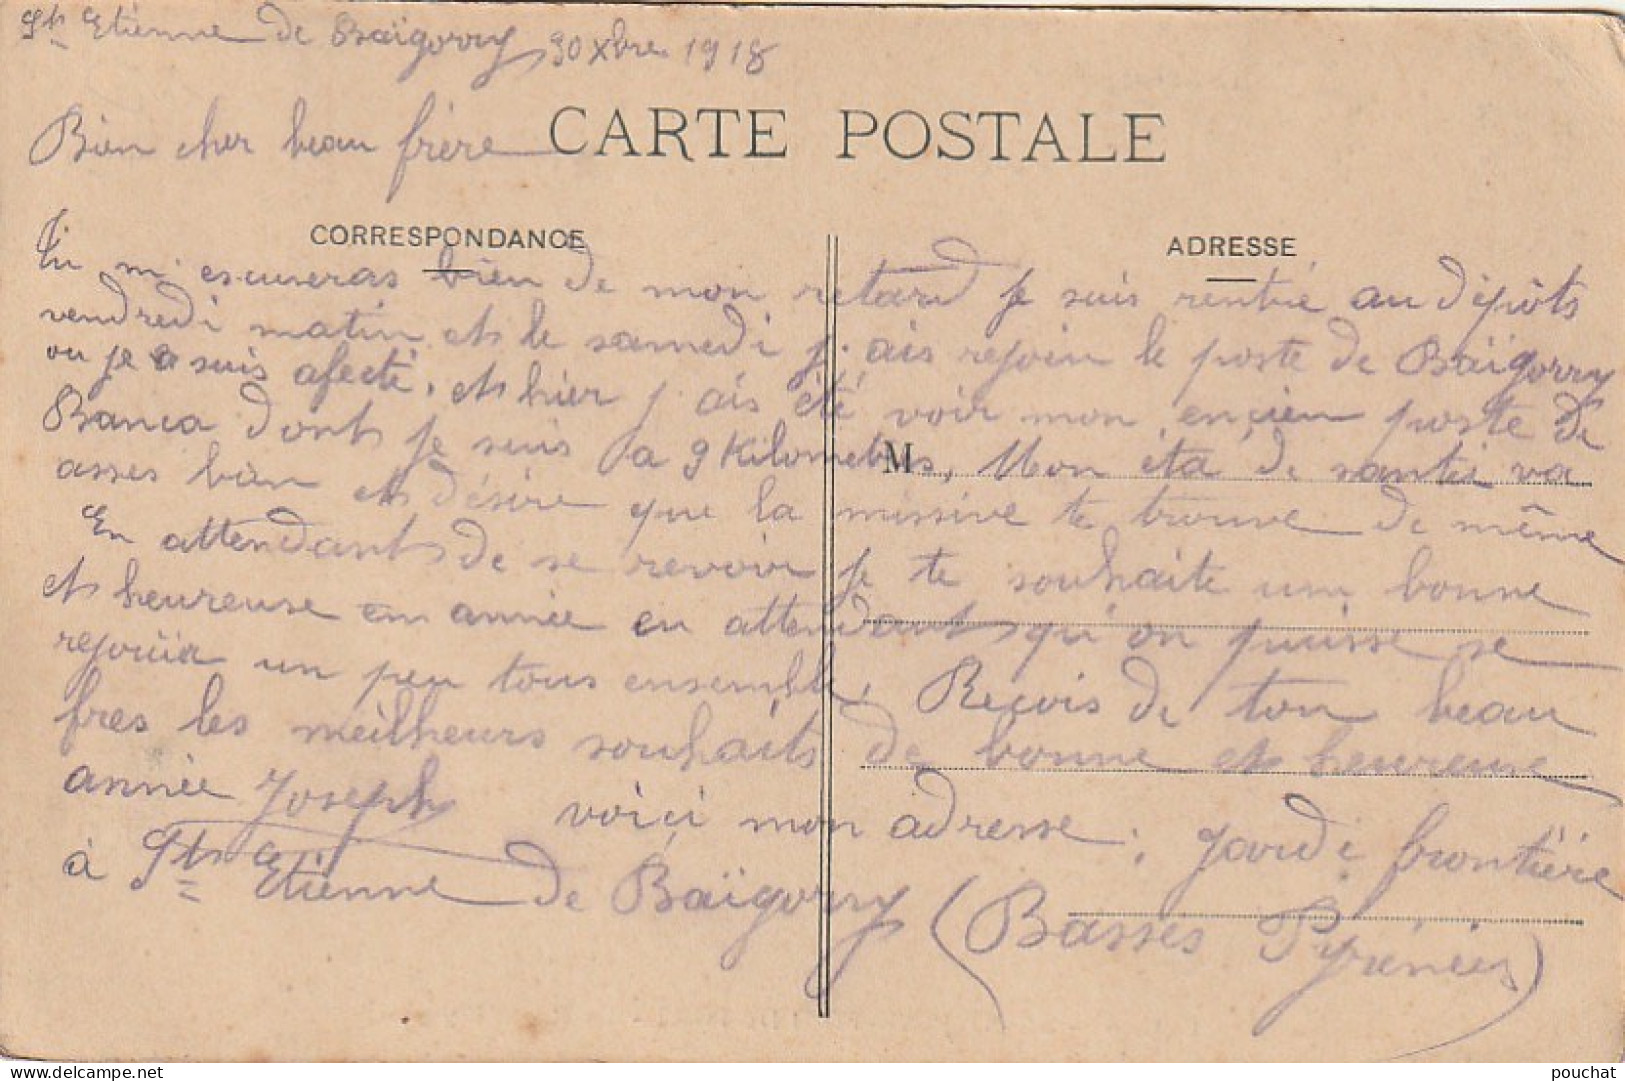 St Etienne de Baïgorry 30 Xbre 1918
Bien cher beau frère
CARTE POSTALE
CORRESPONDANCE
ADRESSE
Tu m'escuseras bien de mon retard je suis rentré au dépôts
vendredi matin et le samedi j'ais rejoin le poste de Baïgorry
ou je suis afecté, et hier j'ais été voir mon encien poste de
Banca dont je suis a 9 Kilometres, Mon éta de santé va
M
asses bien et désire que la missive te trouve de même
En attendant de se revoir je te souhaite une bonne
et heureuse en année en attendant qu'on puisse se
rejouïr un peu tous ensemble, Reçois de ton beau
fres les meilheurs souhaits de bonne et heureuse
année Joseph voici mon adresse : garde frontière
à St Etienne de Baïgorry (Basses Pyrénées)
© pouchat